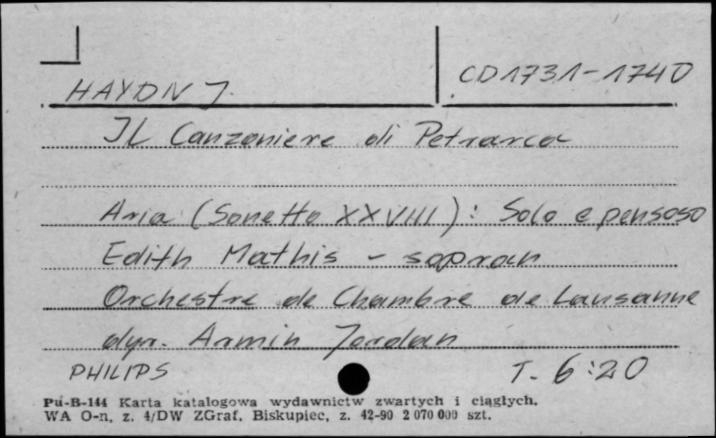 HAYDN J.
CD1731-1740
IL Canzoniere di Petrarca
Aria (Sonetto XXVIII): Solo e pensoso
Edith Mathis - sopran
Orchestre de Chambre de Lausanne
dyr. Armin Jordan
PHILIPS
T. 6:20
Pu-B-144 Karta katalogowa wydawnictw zwartych i ciągłych.
WA O-n, z. 4/DW ZGraf. Biskupiec, z. 42-90 2 070 000 szt.